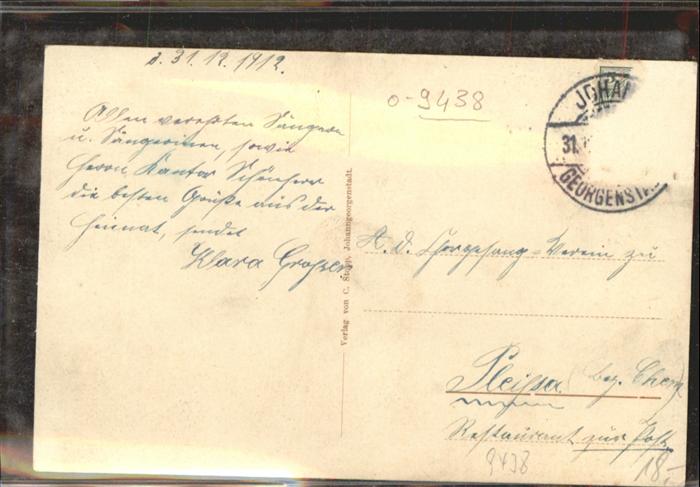 d. 31.12.1912.
o-9438
JOHAN
31.1
GEORGENSTA
Allen verehrten Sängern
u. Sängerinnen, sowie
Herrn Kantor Schönherr
die besten Grüße aus der
Heimat, sendet
Klara
Verlag von C. Stopp, Johanngeorgenstadt.
A. d. Chorgesang-Verein zu
Pleißa (bez. Chem)
Restaurant zur Post.
9438
18,-